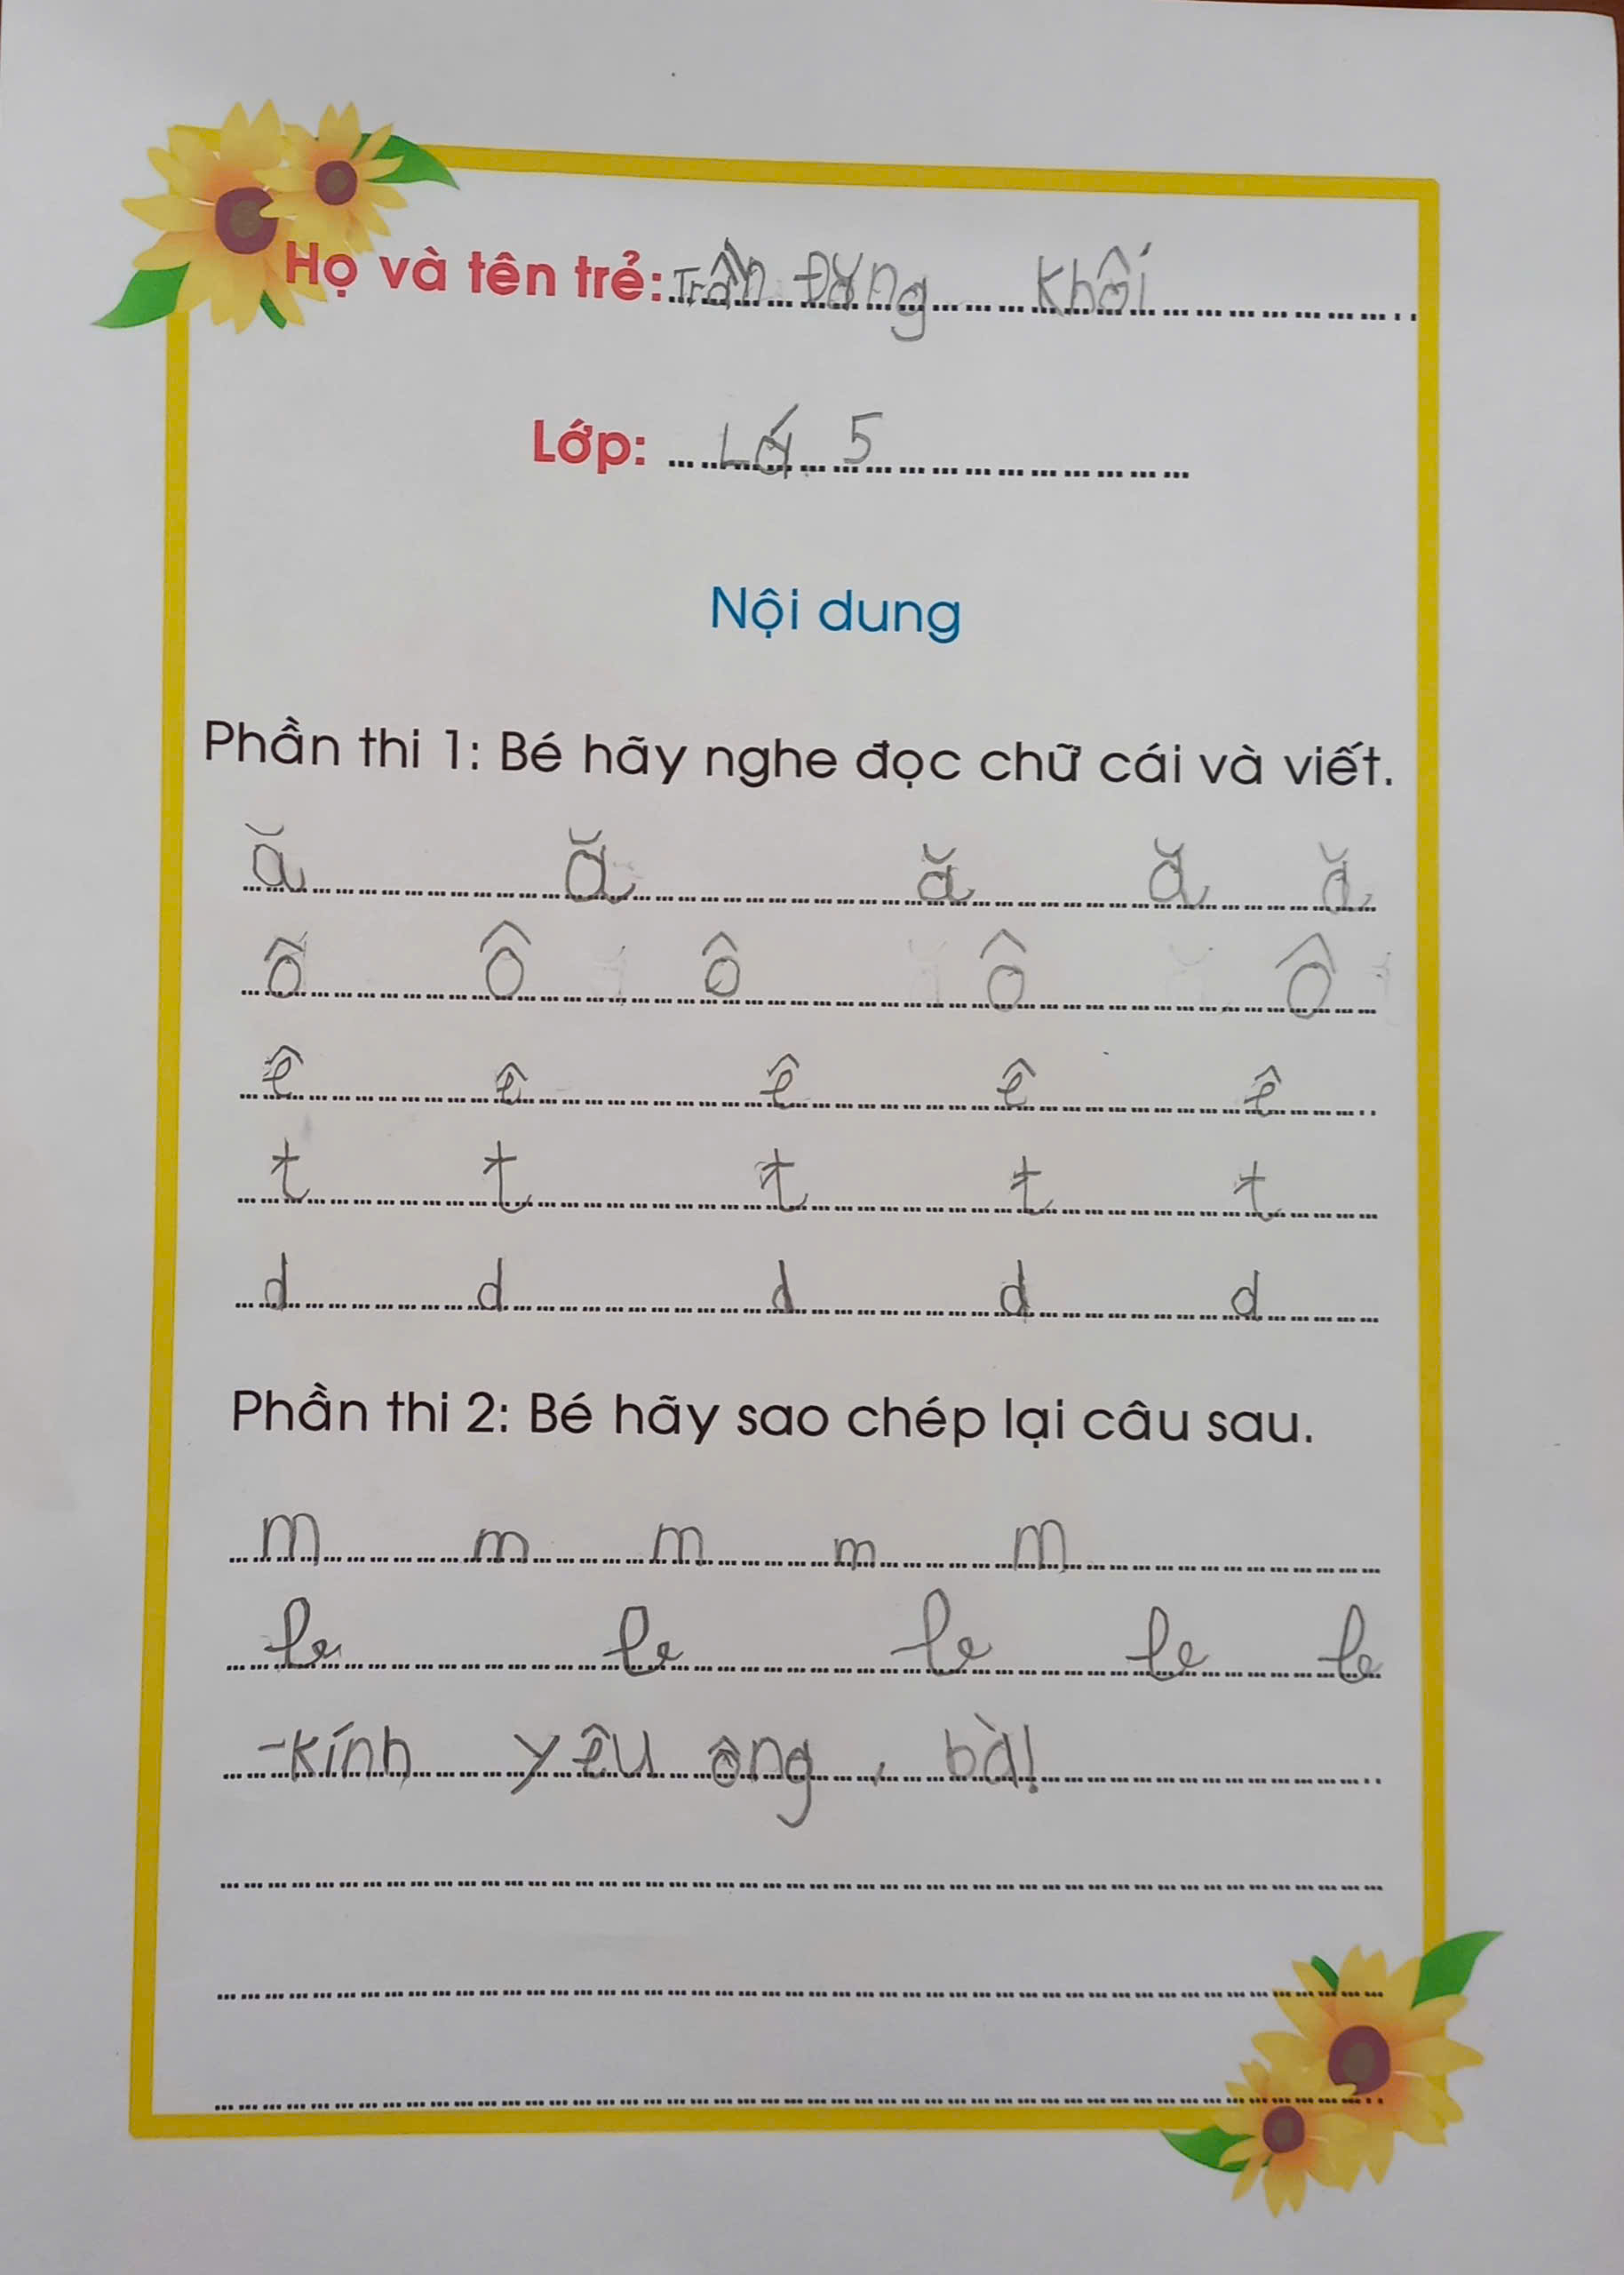 Họ và tên trẻ: Trần Đăng Khôi
Lớp: Lá 5
Nội dung
Phần thi 1: Bé hãy nghe đọc chữ cái và viết.
ă ă ă ă ă
ô ô ô ô ô
ê ê ê ê ê
t t t t t
d d d d d
Phần thi 2: Bé hãy sao chép lại câu sau.
m m m m m
le le le le le
-kính yêu ông, bà!